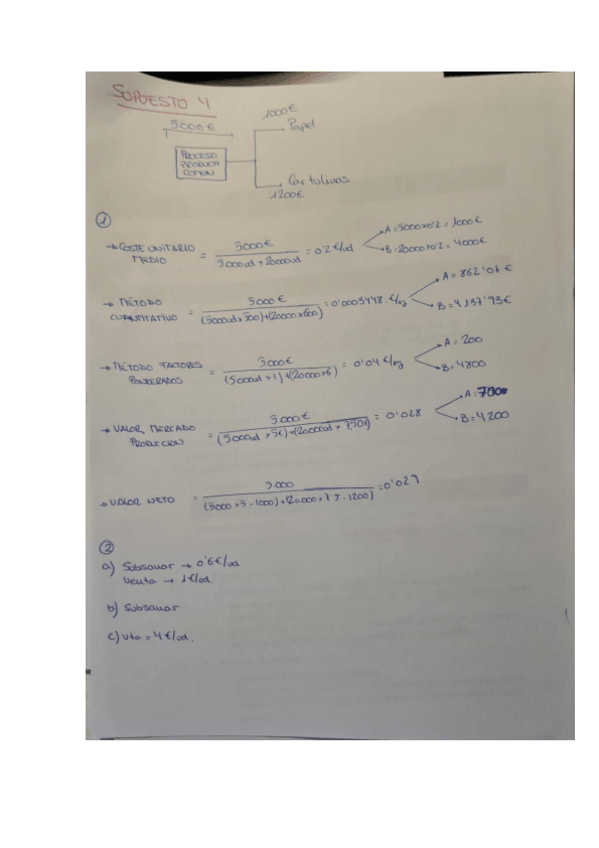 SUPUESTO 4
5000€
1000€
Papel
PROCESO
PRODUCTI
COMÚN
Cartulinas
1200€
①
→ COSTE UNITARIO MEDIO = 5000€ / 5000ud + 20000ud = 0'2€/ud
A = 5000x0'2 = 1000€
B = 20000x0'2 = 4000€
→ MÉTODO CUANTITATIVO = 5000€ / (5000ud x 500)+(20000x600) = 0'0003448 €/kg
A = 862'07 €
B = 4137'93€
→ MÉTODO FACTORES PONDERADOS = 5.000€ / (5000ud x 1)+(20000x6) = 0'04 €/kg
A = 200
B = 4800
→ VALOR MERCADO PRODUCCION = 5.000€ / (5000ud x 5€)+(20000ud x 7,50€) = 0'028
A = 700
B = 4200
→ VALOR NETO = 5.000 / (5000x5-1000)+(20.000x7'5-1200) = 0'029
②
a) Subsanar → 0'6€/ud
Venta → 1€/ud
b) Subsanar
c) Vta = 4€/ud.